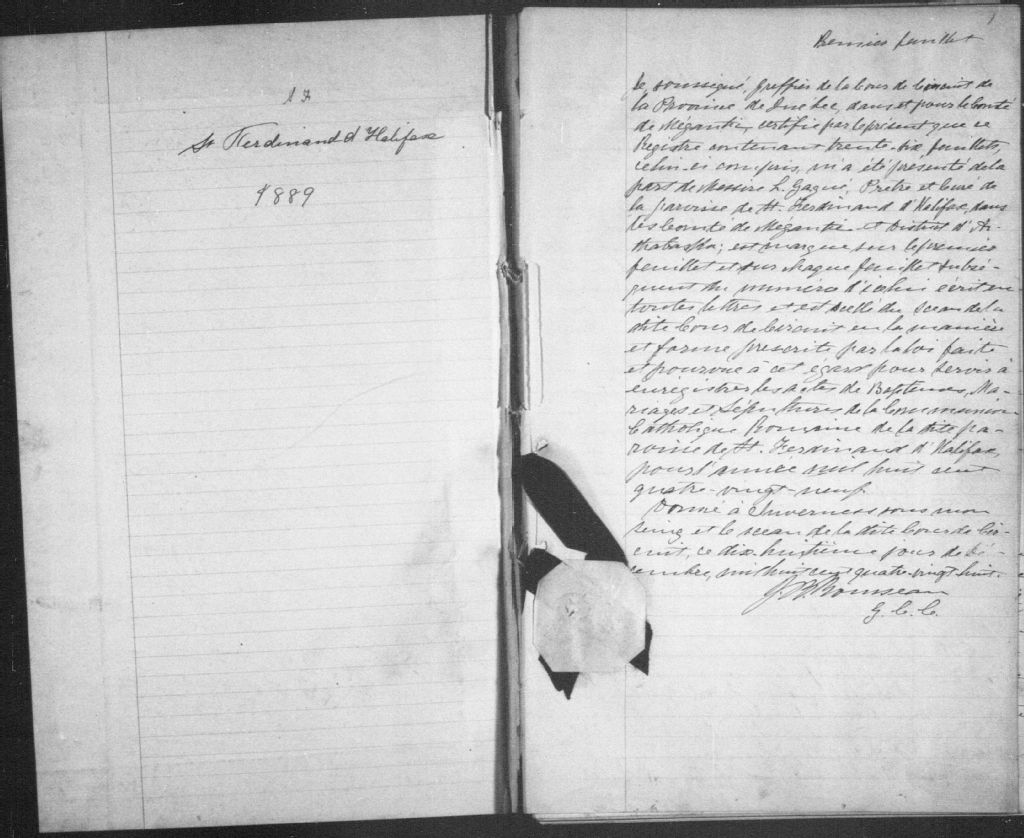 St Ferdinand d'Halifax
1889
1
Premier feuillet
Je, soussigné, Greffier de la Cour de Circuit de
la Province de Québec, dans et pour le Comté
de Mégantic, certifie par le présent que ce
Registre contenant trente-six feuillets,
celui-ci compris, m'a été présenté de la
part de Messire L. Gagné, Prêtre et Curé de
la paroisse de St. Ferdinand d'Halifax, dans
les Comté de Mégantic et District d'Ar-
thabaska; est marqué sur le premier
feuillet et sur chaque feuillet subsé-
quent du numéro d'icelui écrit en
toutes lettres et est scellé du sceau de la
dite Cour de Circuit en la manière
et forme prescrite par la loi faite
et pourvue à cet égard pour servir à
enregistrer les actes de Baptêmes, Ma-
riages et Sépultures de la Communion
Catholique Romaine de la dite pa-
roisse de St. Ferdinand d'Halifax,
pour l'année mil huit cent
quatre-vingt-neuf.
Donné à Inverness sous mon
seing et le sceau de la dite Cour de Cir-
cuit, ce dix-huitième jour de Dé-
cembre, mil huit cent quatre-vingt-huit.
Rousseau
G. C. C.